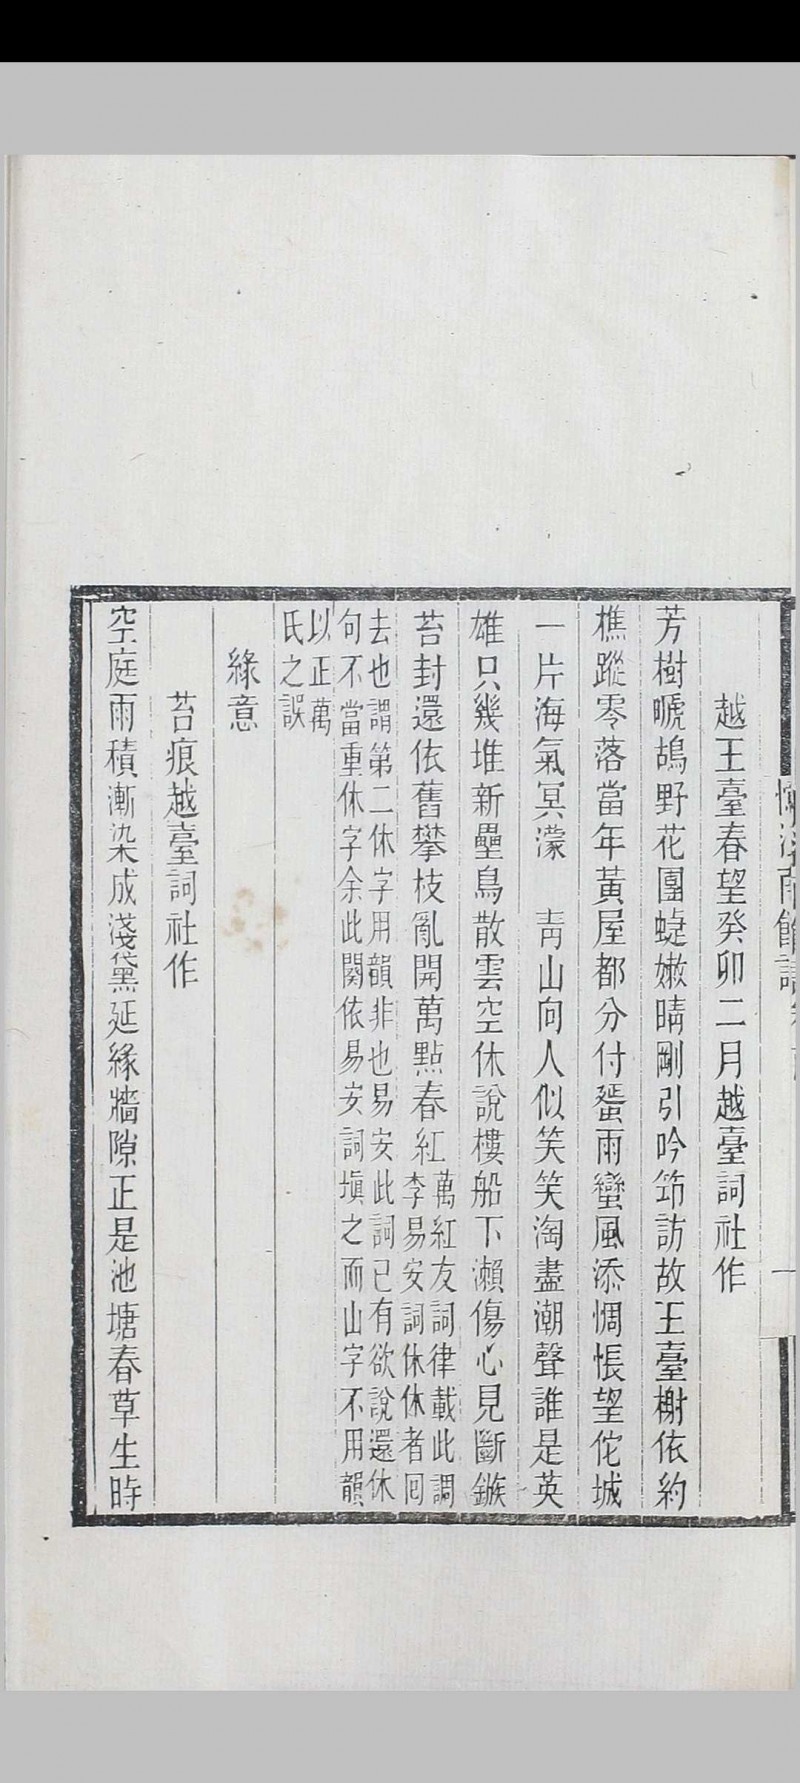 越王臺春望癸卯二月越臺詞社作
芳樹嗁鴣野花團蜨嫩晴剛引吟筇訪故王臺榭依約
樵蹤零落當年黃屋都分付蜑雨蠻風添惆悵望佗城
一片海氣冥濛　靑山向人似笑笑淘盡潮聲誰是英
雄只幾堆新壘鳥散雲空休說樓船下瀨傷心見斷鏃
苔封還依舊攀枝亂開萬點春紅
萬紅友詞律載此調
李易安詞休休者回
去也謂第二休字用韻非也易安此詞已有欲說還休
句不當重休字余此闋依易安詞塡之而山字不用韻
以正萬
氏之誤
綠意
苔痕越臺詞社作
空庭雨積漸染成淺黛延緣牆隙正是池塘春草生時